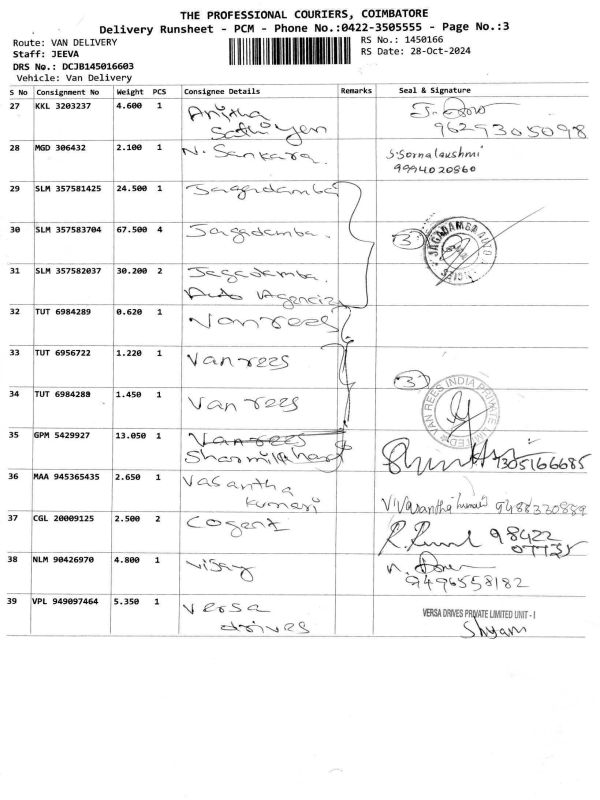 THE PROFESSIONAL COURIERS, COIMBATORE
Delivery Runsheet - PCM - Phone No.:0422-3505555 - Page No.:3
Route: VAN DELIVERY
RS No.: 1450166
Staff: JEEVA
RS Date: 28-Oct-2024
DRS No.: DCJB145016603
Vehicle: Van Delivery
S No Consignment No Weight PCS Consignee Details Remarks Seal & Signature
27 KKL 3203237 4.600 1 Anitha
Sathiyen
9629305098
28 MGD 306432 2.100 1 N. Sankara. S. Sornalaushmi
9994020860
29 SLM 357581425 24.500 1 Jagadamba
30 SLM 357583704 67.500 4 Jagadamba. 3 JAGADAMBA AUTO
31 SLM 357582037 30.200 2 Jagadamba.
Auto Agencies
32 TUT 6984289 0.620 1 Vanrees
33 TUT 6956722 1.220 1 Van rees
34 TUT 6984288 1.450 1 Van rees 3 VAN REES INDIA PRIVATE LIMITED
35 GPM 5429927 13.050 1 Vanrees
9305166685
36 MAA 945365435 2.650 1 Vasantha
kumari
Vasantha kumari
37 CGL 20009125 2.500 2 Cogent R. 98422
38 NLM 90426970 4.800 1 Vijay
9496558182
39 VPL 949097464 5.350 1 Versa
drives
VERSA DRIVES PRIVATE LIMITED UNIT - I
Shyam